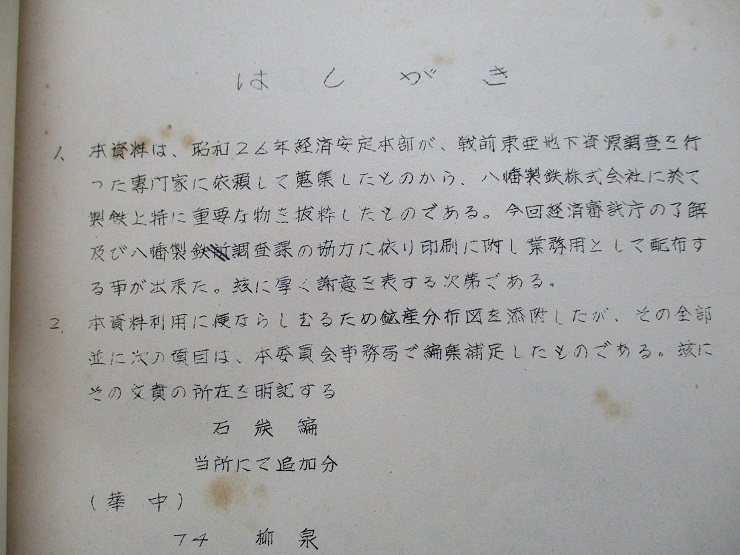 はしがき
1、本資料は、昭和26年経済安定本部が、戦前東亜地下資源調査を行
った専門家に依頼して蒐集したものから、八幡製鉄株式会社に於て
製鉄上特に重要な物を抜粋したものである。今回経済審議庁の了解
及び八幡製鉄調査課の協力に依り印刷に附し業務用として配布す
る事が出来た。玆に厚く謝意を表する次第である。
2、本資料利用に便ならしむるため鉱産分布図を添附したが、その全部
並に次の項目は、本委員会事務局で編集補足したものである。玆に
その文責の所在を明記する
石炭編
当所にて追加分
(華中)
74 柳泉